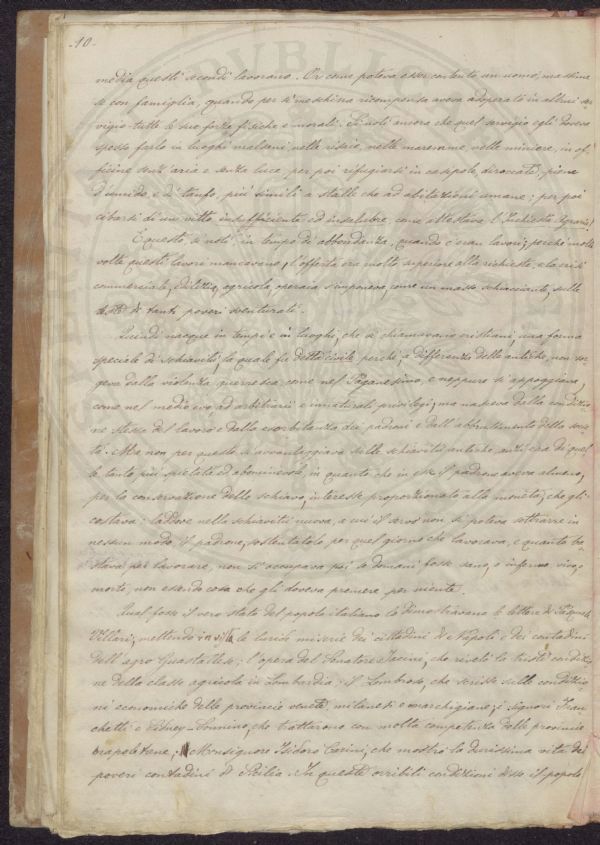 10.
media questi secondi lavorano. Or come poteva esser contento un uomo, massime
se con famiglia, quando per sì meschina ricompensa aveva adoperato in altrui ser
vigio tutte le sue forze fisiche e morali. Si noti ancora che quel servigio egli doveva
spesso farlo in luoghi malsani nelle risaie, nelle maremme nelle miniere, in of
ficine senz'aria e senza luce, per poi rifugiarsi in casipole diroccate, piene
d'umido, e di tanfo, più simili a stalle che ad abitazioni umane; per poi
cibarsi di un vitto insufficiente ed insalubre, come attestava l'Inchiesta Agraria!
E questo, si noti, in tempo di abbondanza, quando c'eran lavori; perchè molte
volte questi lavori mancavano, l'offerta era molto superiore alla richiesta, e la crisi
commerciale, edilizia, agricola, operaia s'imponeva, come un masso schiacciante, sulle
teste di tanti poveri sventurati.
Quindi nacque in tempi e in luoghi, che si chiamavano cristiani, una forma
speciale di schiavitù, la quale fu detta civile perchè, a differenza delle antiche, non sor
geva dalla violenza guerresca come nel Paganesimo, e neppure si appoggiava,
come nel medio evo ad arbitrarii e innaturali privilegi; ma nasceva dalla condizio
ne stessa del lavoro e dalla esorbitanza dei padroni e dall'abbrutimento della socie
tà. Ma non per questo si avvantaggiava sulle schiavitù antiche anzi era di quel
le tanto più spietata ed abominevole, in quanto che in esse il padrone aveva almeno,
per la conservazione dello schiavo, interesse proporzionato alla moneta, che gli
costava: laddove nella schiavitù nuova, a cui il servo non si poteva sottrarre in
nessun modo, il padrone, sostentatolo per quel giorno che lavorava, e quanto ba
stava per lavorare, non si occupava poi se domani fosse sano, o infermo vivo, o
morto, non essendo cosa che gli doveva premere per niente.
Qual fosse il vero stato del popolo italiano lo dimostravano le lettere di Pasquale
Villari, mettendo in vista le luride miserie dei cittadini di Napoli e dei contadini
dell'agro Guastallese: l'opera del Senatore Jacini, che rivelò la triste condizio
ne della classe agricola in Lombardia: il Lombroso, che scrisse sulle condizio
ni economiche delle provincie venete, milanesi e marchigiane; i signori Fran
chetti e Sidney-Sonnino, che trattarono con molta competenza delle provincie
napoletane, Monsignore Isidoro Carini, che mostrò la durissima vita dei
poveri contadini di Sicilia. In queste orribili condizioni esso il popolo